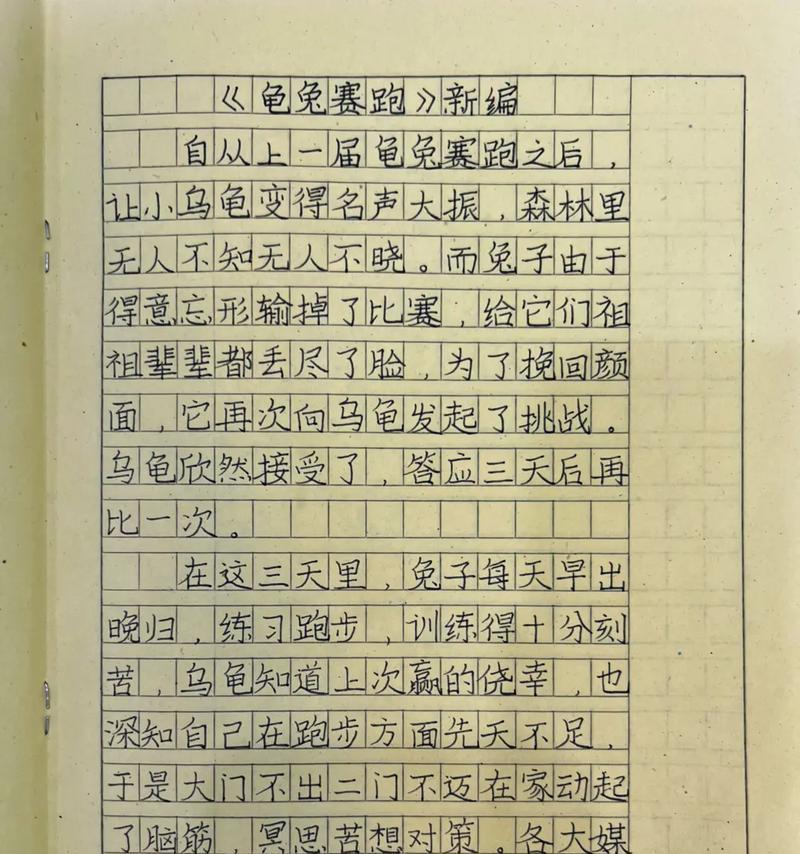 《龟兔赛跑》新编
自从上一届龟兔赛跑之后，
让小乌龟变得名声大振，森林里
无人不知无人不晓。而兔子由于
得意忘形输掉了比赛，给它们祖
祖辈辈都丢尽了脸，为了挽回颜
面，它再次向乌龟发起了挑战。
乌龟欣然接受了，答应三天后再
比一次。
在这三天里，兔子每天早出
晚归，练习跑步，训练得十分刻
苦，乌龟知道上次赢的侥幸，也
深知自己在跑步方面先天不足，
于是大门不出二门不迈在家动起
了脑筋，冥思苦想对策。各大媒